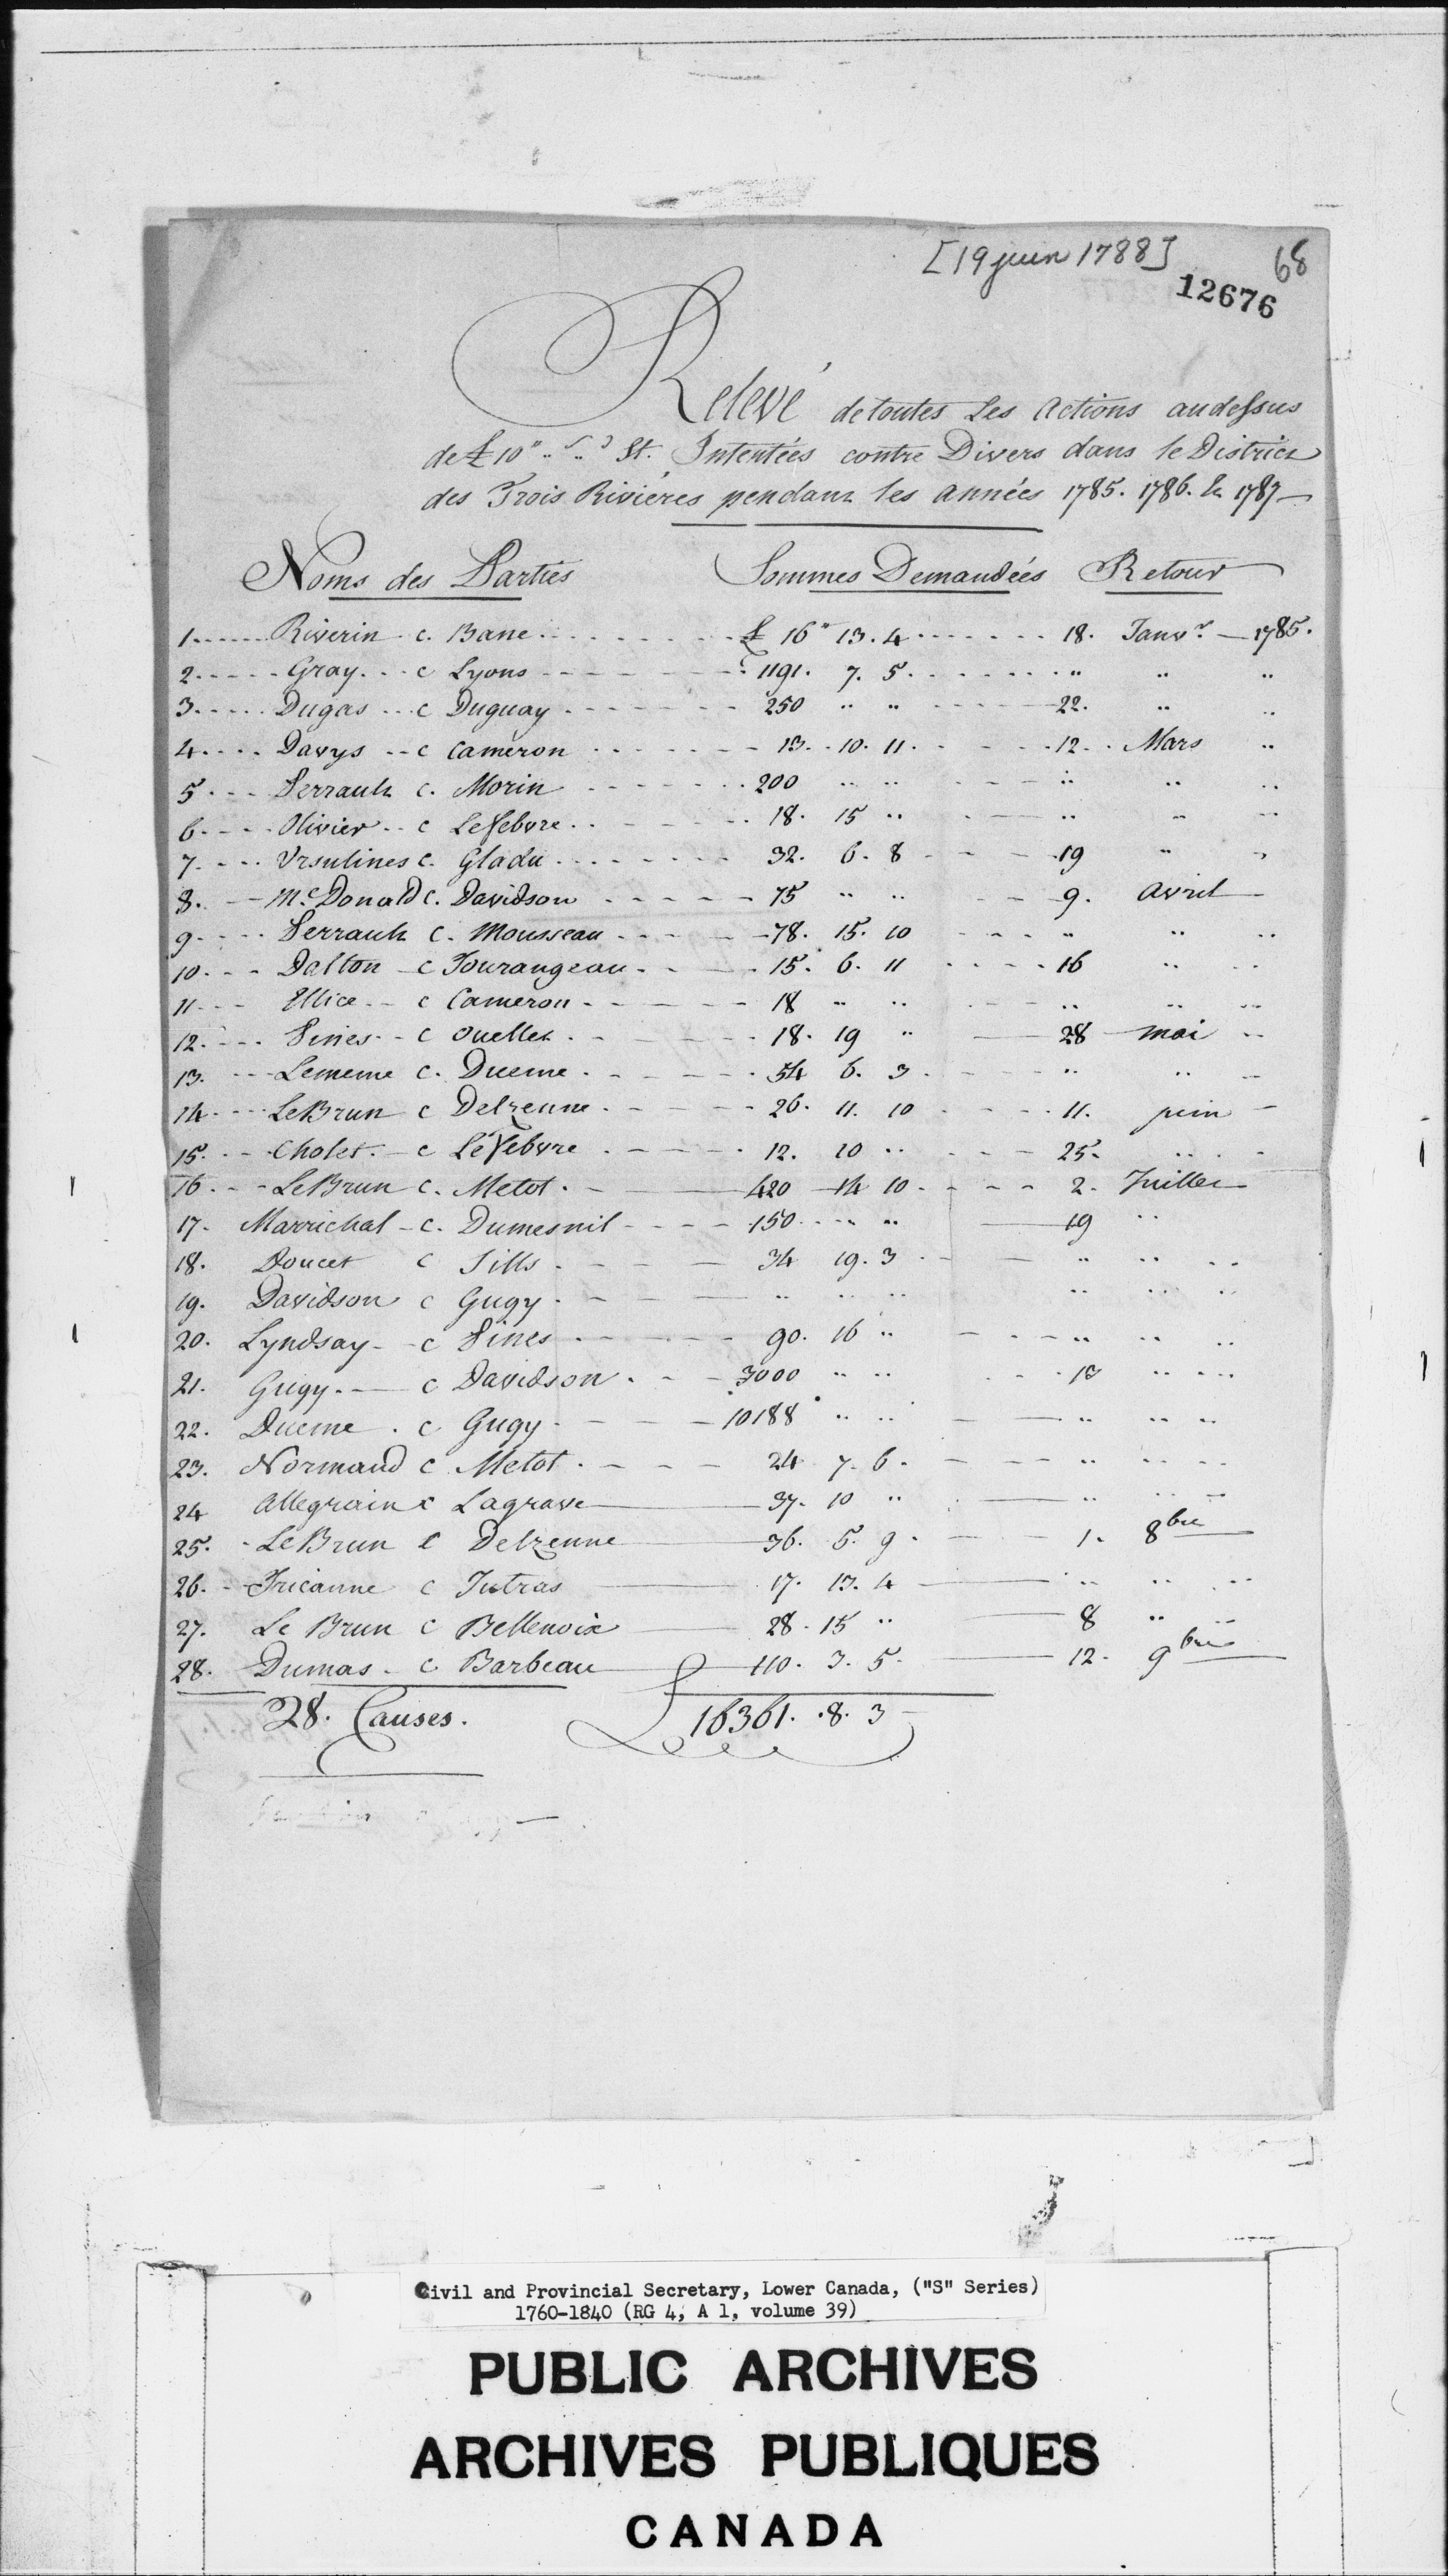 [19 juin 1788] 68
12676
Relevé de toutes Les Actions audessus
de £10 " .. s .. d St. Intentées contre Divers dans le District
des Trois Rivières pendant les années 1785. 1786. & 1787 —
Noms des Parties Sommes Demandées Retour
1 Riverin c. Bane £ 16 " 13. 4 18. Janvr. — 1785.
2 Gray c Lyons 1191. 7. 5. " " "
3 Dugas c Duguay 250 " " 22. " "
4 Davys c Cameron 13. 10. 11. 12. Mars "
5 Perrault c. Morin 200 " " " " "
6 Olivier c Lefebvre 18. 15 " " " "
7 Ursulines c. Gladu 32. 6. 8 19 " "
8. McDonald c. Davidson 75 " " 9. Avril —
9 Perrault c. Mousseau 78. 15. 10 " " "
10 Dalton c Tourangeau 15. 6. 11 16 " "
11 Ellice c Cameron 18 " " " " "
12. Pines c Ouellet 18. 19 " 28 mai "
13. Lememe c. Dueme 54 6. 3 " " "
14 LeBrun c Delzenne 26. 11. 10 11. juin —
15. Cholet c Lefebvre 12. 10 " 25. " "
16. LeBrun c. Metot 420 14 10 2. Juillet
17. Marrichal c. Dumesnil 150 " " 19 "
18. Doucet c Sills 34 19. 3 " " "
19. Davidson c Gugy " " " " " "
20. Lyndsay c Pines 90. 16 " " " "
21. Gugy c Davidson 3000 " " " "
22. Dueme c Gugy 10188 " " " " "
23. Normand c Metot 24 7. 6. " " "
24 Allegrain c Lagrave 37. 10 " " " "
25. LeBrun c Delzenne 36. 5. 9. 1. 8bre
26. Tricanne c Jutras 17. 13. 4 " " "
27. Le Brun c Bellenoix 28. 15 " 8 " "
28. Dumas c Barbeau 110. 3. 5. 12. 9bre
28. Causes. £16361. 8. 3
Civil and Provincial Secretary, Lower Canada, ("S" Series)
1760-1840 (RG 4, A 1, volume 39)
PUBLIC ARCHIVES
ARCHIVES PUBLIQUES
CANADA